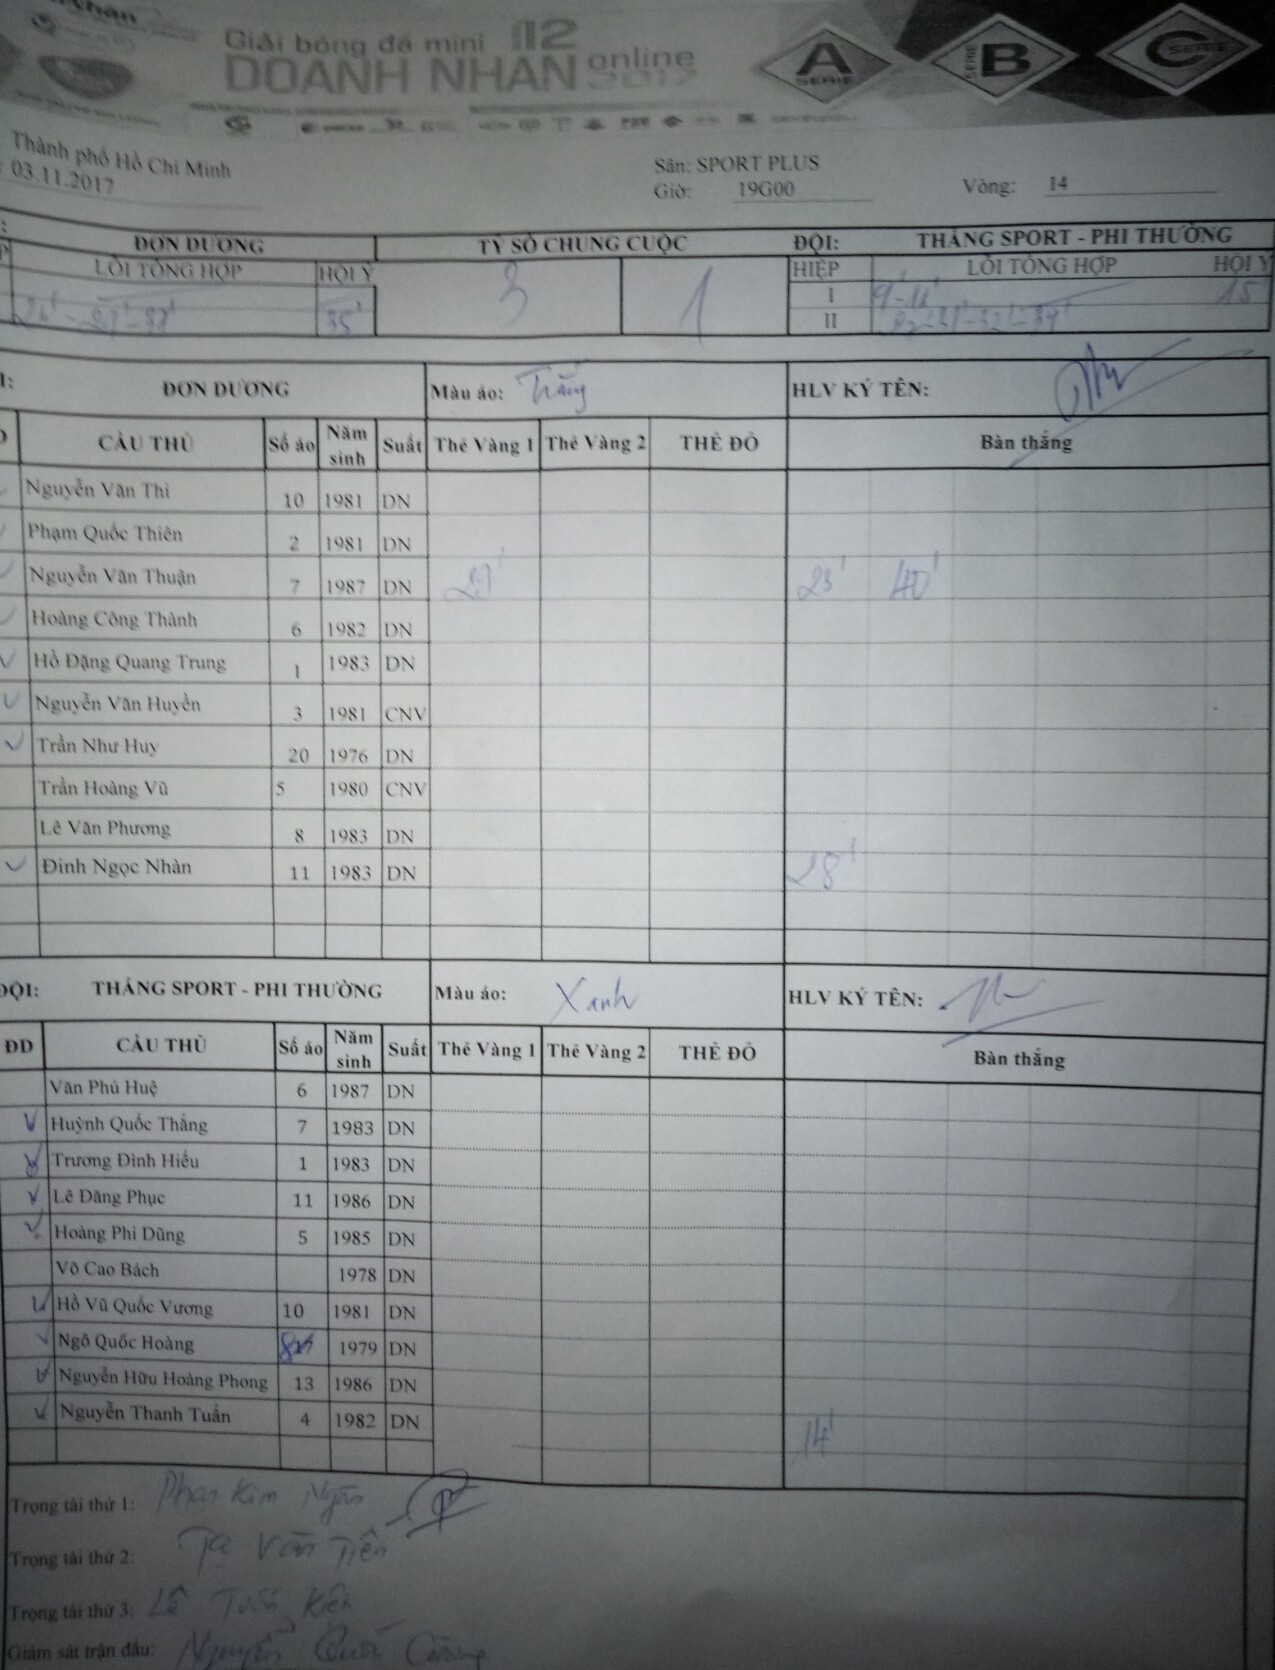 Giải bóng đá mini 112
DOANH NHÂN online 2017
A SERIE
B SERIE
C SERIE
Thành phố Hồ Chí Minh
03.11.2017
Sân: SPORT PLUS
Giờ: 19G00 Vòng: 14
ĐƠN DƯƠNG TỶ SỐ CHUNG CUỘC ĐỘI: THẮNG SPORT - PHI THƯỜNG
LỖI TỔNG HỢP HỘI Ý 3 1 HIỆP LỖI TỔNG HỢP HỘI Ý
I 15'
35' II
ĐƠN DƯƠNG Màu áo: Trắng HLV KÝ TÊN:
CẦU THỦ Số áo Năm sinh Suất Thẻ Vàng 1 Thẻ Vàng 2 THẺ ĐỎ Bàn thắng
Nguyễn Văn Thi 10 1981 DN
Phạm Quốc Thiên 2 1981 DN
Nguyễn Văn Thuận 7 1987 DN 23' 40'
Hoàng Công Thành 6 1982 DN
Hồ Đặng Quang Trung 1 1983 DN
Nguyễn Văn Huyền 3 1981 CNV
Trần Như Huy 20 1976 DN
Trần Hoàng Vũ 5 1980 CNV
Lê Văn Phương 8 1983 DN
Đinh Ngọc Nhàn 11 1983 DN 28'
ĐỘI: THẮNG SPORT - PHI THƯỜNG Màu áo: Xanh HLV KÝ TÊN:
ĐD CẦU THỦ Số áo Năm sinh Suất Thẻ Vàng 1 Thẻ Vàng 2 THẺ ĐỎ Bàn thắng
Văn Phú Huệ 6 1987 DN
Huỳnh Quốc Thắng 7 1983 DN
Trương Đình Hiếu 1 1983 DN
Lê Đăng Phục 11 1986 DN
Hoàng Phi Dũng 5 1985 DN
Võ Cao Bách 1978 DN
Hồ Vũ Quốc Vương 10 1981 DN
Ngô Quốc Hoàng 1979 DN
Nguyễn Hữu Hoàng Phong 13 1986 DN
Nguyễn Thanh Tuấn 4 1982 DN 14'
Trọng tài thứ 1: Phan Kim Ngân
Trọng tài thứ 2: Tạ Văn Tiên
Trọng tài thứ 3: Lê Tuấn Kiệt
Giám sát trận đấu: Nguyễn Quốc Cường